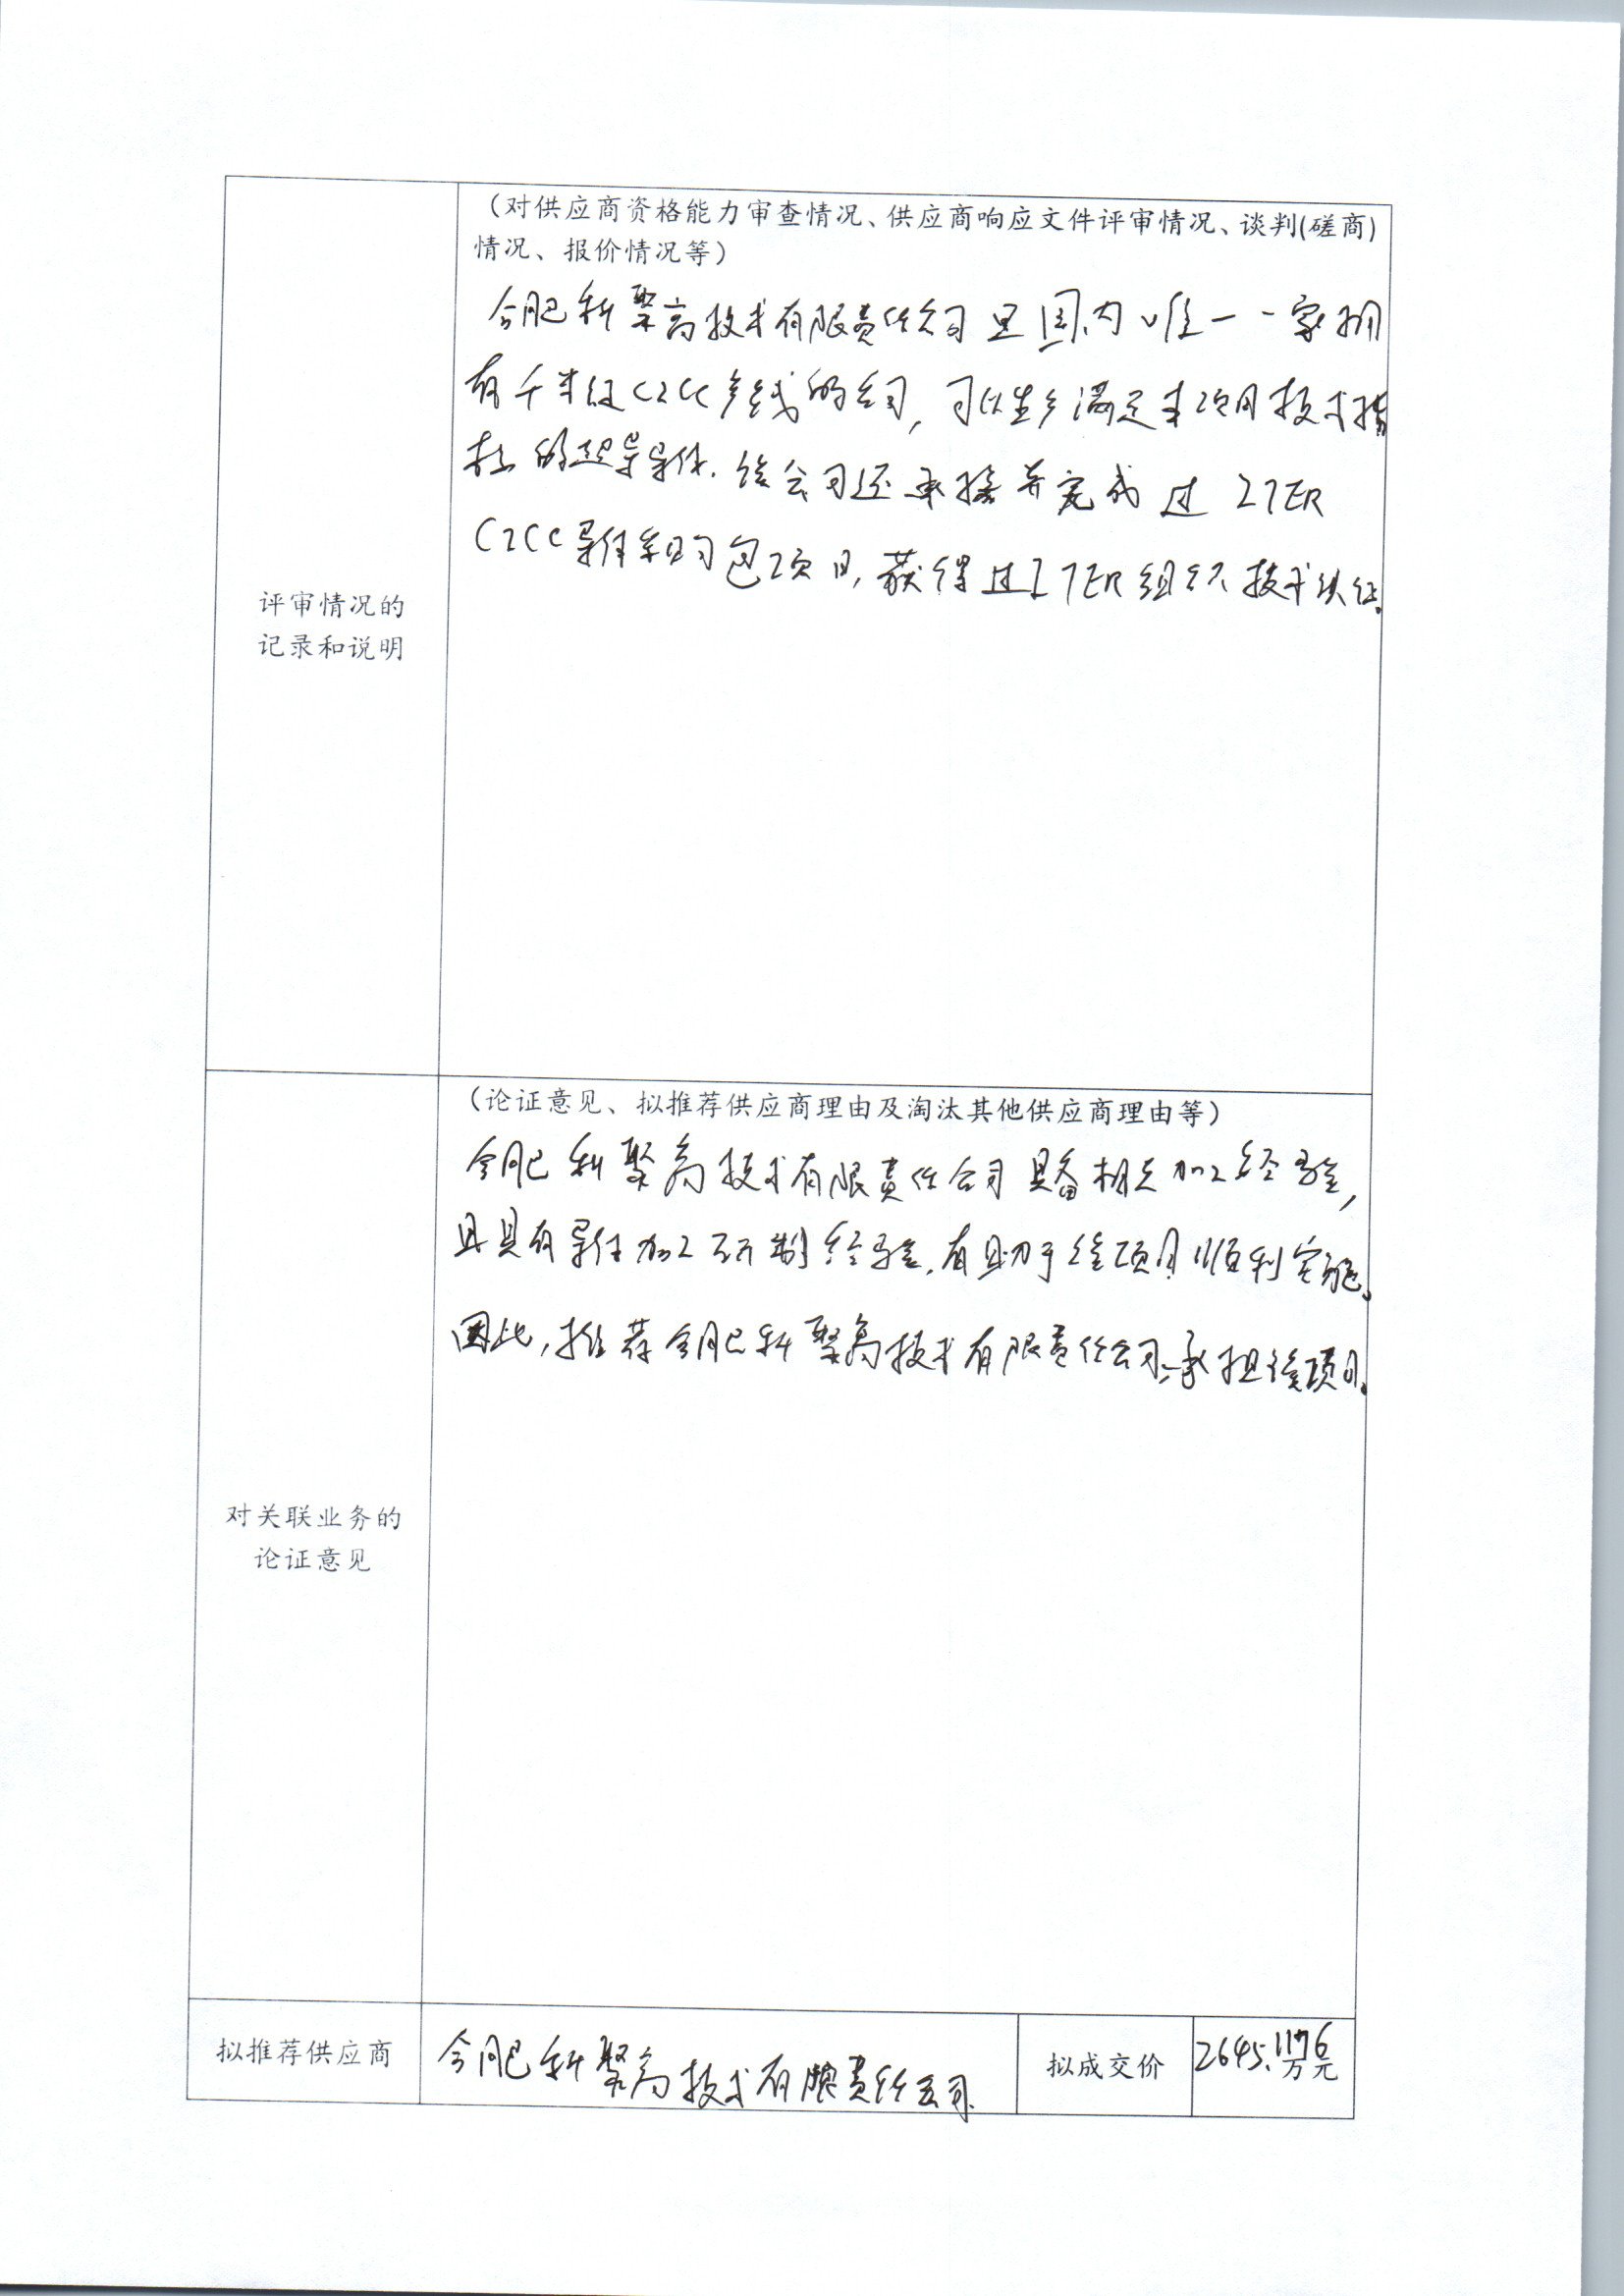 （对供应商资格能力审查情况、供应商响应文件评审情况、谈判(磋商)
情况、报价情况等）
合肥科聚高技术有限责任公司是国内唯一一家拥
有千米级CICC产线的公司，可以生产满足本项目技术指
标的超导导体。该公司还承接并完成过ITER
CICC导体采购包项目，获得过ITER组织技术认证。
评审情况的
记录和说明
（论证意见、拟推荐供应商理由及淘汰其他供应商理由等）
合肥科聚高技术有限责任公司具备相关加工经验，
且具有导体加工研制经验，有助于该项目顺利实施。
因此，推荐合肥科聚高技术有限责任公司承担该项目。
对关联业务的
论证意见
拟推荐供应商
合肥科聚高技术有限责任公司
拟成交价
2645.1176
万元